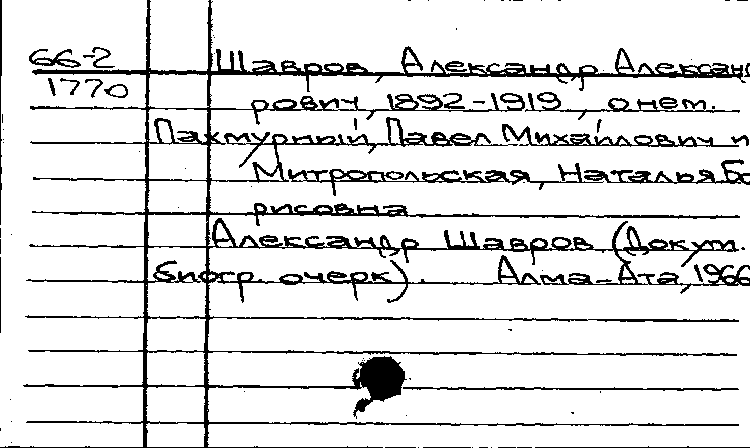 66-2 Шавров, Александр Александ
1770 рович, 1892-1919, о нем.
Пахмурный, Павел Михайлович и
Митропольская, Наталья Бо
рисовна
Александр Шавров (Докум.
биогр. очерк). Алма-Ата, 1966